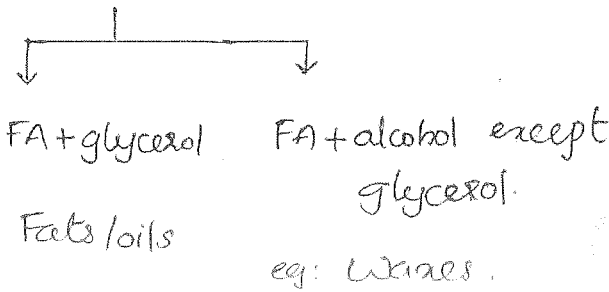 FA + glycerol
Fats/oils
FA + alcohol except
glycerol.
eg: Waxes.